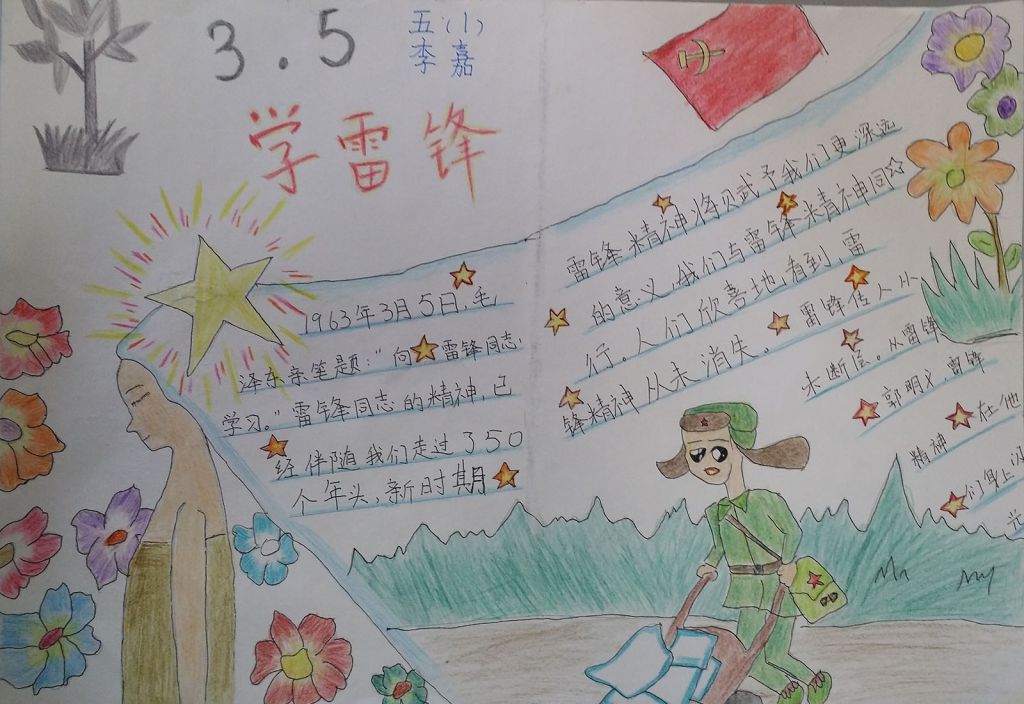 3.5
五(1)
李嘉
学雷锋
1963年3月5日，毛
泽东亲笔题："向雷锋同志
学习。"雷锋同志的精神，已
经伴随我们走过了50
个年头，新时期
雷锋精神将贝武予我们更深远
的意义，我们与雷锋精神同
行。人们欣喜地，看到，雷
锋精神从未消失。雷锋传人从
未断层。从雷锋
郭明义，雷锋
精神在他
们身上闪
光